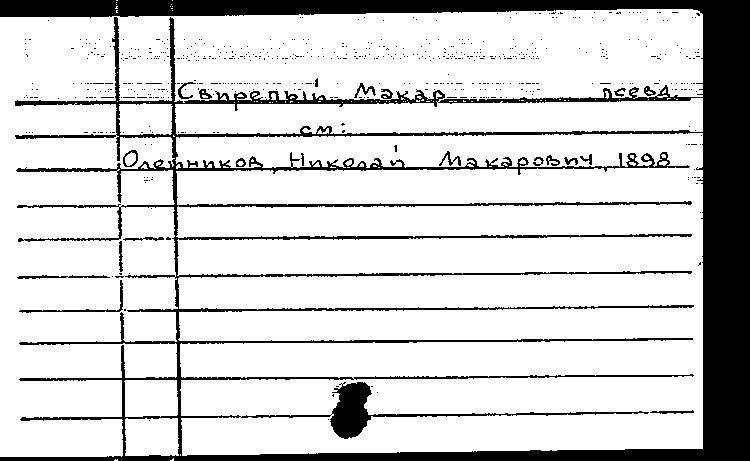 Свирепый, Макар псевд.
см:
Олейников, Николай Макарович, 1898